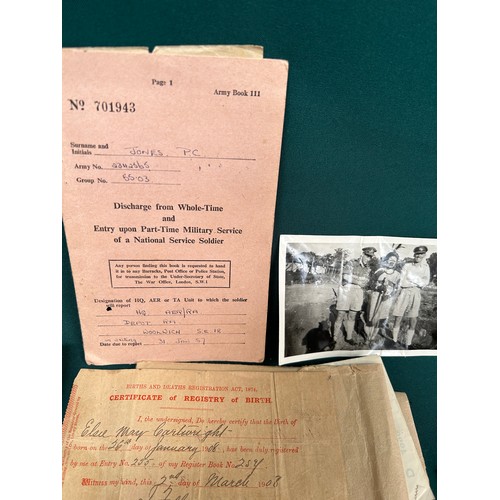 Page 1
Army Book 111
No 701943
Surname and
Initials JONES. PC
Army No.
Group No. 55-03
Discharge from Whole-Time
and
Entry upon Part-Time Military Service
of a National Service Soldier
Any person finding this book is requested to hand
it in to any Barracks, Post Office or Police Station,
for transmission to the Under-Secretary of State,
The War Office, London, S.W.1
Designation of HQ, AER or TA Unit to which the soldier
will report HQ AER/RA
DEPOT RA
WOOLWICH S.E.18
Date due to report 31 Jan 57
BIRTHS AND DEATHS REGISTRATION ACT, 1874.
CERTIFICATE OF REGISTRY OF BIRTH.
I, the undersigned, Do hereby certify that the Birth of
Elsie May Cartwright
born on the 26th day of January 1908, has been duly registered
by me at Entry No. 255 of my Register Book No. 254
Witness my hand, this 2nd day of March 1908